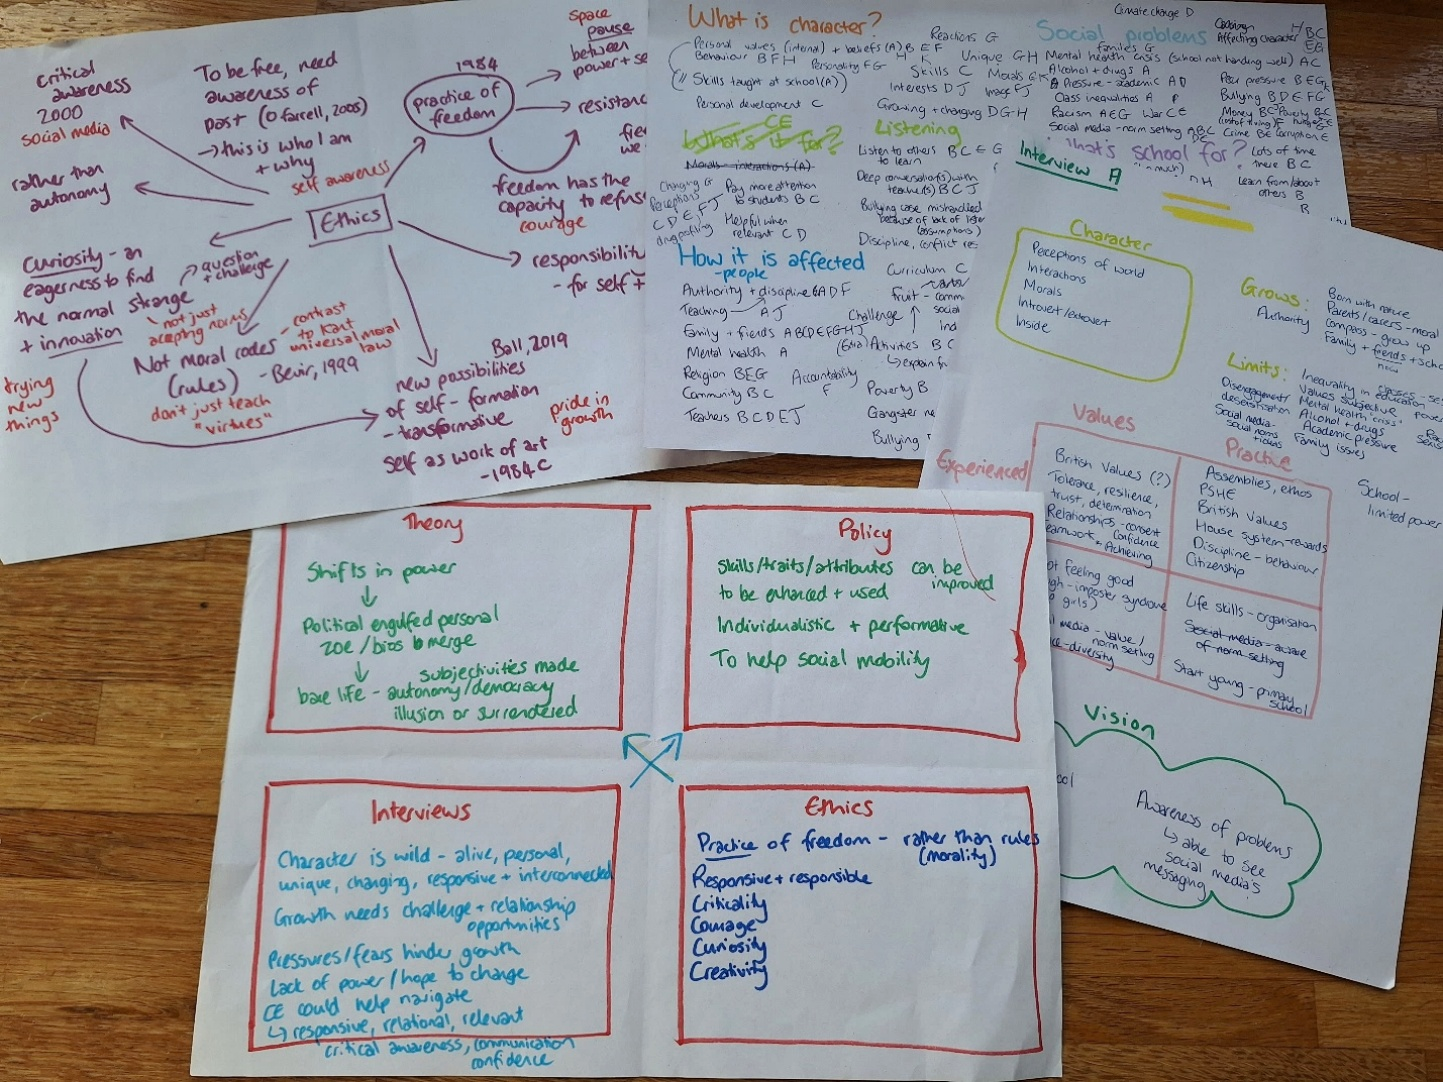 critical
awareness
2000
social media
rather than
autonomy
To be free, need
awareness of
past (O'Farrell, 2005)
→ this is who I am
+ why
self awareness
1984
practice of
freedom
space
pause
between
power + se
resistanc
freedom has the
capacity to refuse
courage
Ethics
responsibility
- for self +
curiosity - an
eagerness to find
the normal strange
+ innovation
question
+ challenge
not just
accepting norms
Not moral codes
(rules) - Bevir, 1999
- contrast
to Kant
universal moral
law
don't just teach
"virtues"
trying
new
things
Ball, 2019
new possibilities
of self-formation
- transformative
self as work of art
- 1984 c
pride in
growth
What is character?
Personal values (internal) + beliefs (A) B E F
Behaviour B F H
Personality E G
H K
(" Skills taught at school (A))
Skills C
Personal development C
Reactions G
Unique G H
Morals G K
Interests D J
Image F J
Growing + changing D G H
CE
What's it for?
Morals - interactions (A)
Changing G
Perceptions
C D E F J
Pay more attention
to students B C
Helpful when
relevant C D
Listening
Listen to others B C E G
to learn
Deep conversation(s) with
teacher(s) B C J
Bullying case mishandled
because of lack of liste
(assumptions)
Discipline, conflict res
How it is affected
- people
Authority + discipline B A D F
Teaching A J
Family + friends A B C D E F G H J
Mental health A
Religion B E G
Community B C
Teachers B C D E J
Accountability
F
Curriculum C
Challenge
(Extra) Activities B C
Poverty B
Gangster ne
Bullying
Climate change D
Social problems
families G
Mental health crisis (school not handling well) A C
Alcohol + drugs A
Pressure - academic A D
Class inequalities A
Racism A E G War C E
Social media - norm setting A B C
Affecting character
Peer pressure B E G
Bullying B D E F G
Crime B E Corruption E
What's school for?
Lots of time
there B C
Learn from/about
others B
Interview A
Character
Perceptions of world
Interactions
Morals
Introvert/extrovert
Inside
Grows:
Authority
Born with nature
Parents/carers - moral
compass - grow up
Family + friends + scho
Limits:
Disengagement/
desensitisation
Social media -
social norms
Inequality in education
Values subjective
Mental health 'crisis'
Alcohol + drugs
Academic pressure
Family issues
School -
limited power
Values
Practice
Experienced
British Values (?)
Tolerance, resilience,
trust, determination,
Relationships - consent
Confidence
eamwork + Achieving
Assemblies, ethos
PSHE
British Values
House system - rewards
Discipline - behaviour
Citizenship
ot feeling good
gh - imposter syndrome
girls)
l media - value/
norm setting
ce - diversity
Life skills - organisation
Social media - aware
of norm setting
Start young - primary
school
Vision
ool
Awareness of problems
↳ able to see
social media's
messaging
Theory
Shifts in power
↓
Political engulfed personal
zoe/bios b merge
↓ subjectivities made
bare life - autonomy/democracy
illusion or surrendered
Policy
Skills/traits/attributes can be
improved
to be enhanced + used
Individualistic + performative
To help social mobility
Interviews
Character is wild - alive, personal,
unique, changing, responsive + interconnected
Growth needs challenge + relationship
opportunities
Pressures/fears hinder growth
Lack of power/hope to change
CE could help navigate
↳ responsive, relational, relevant
critical awareness, communication
confidence
Ethics
Practice of freedom - rather than rules
(morality)
Responsive + responsible
Criticality
Courage
Curiosity
Creativity